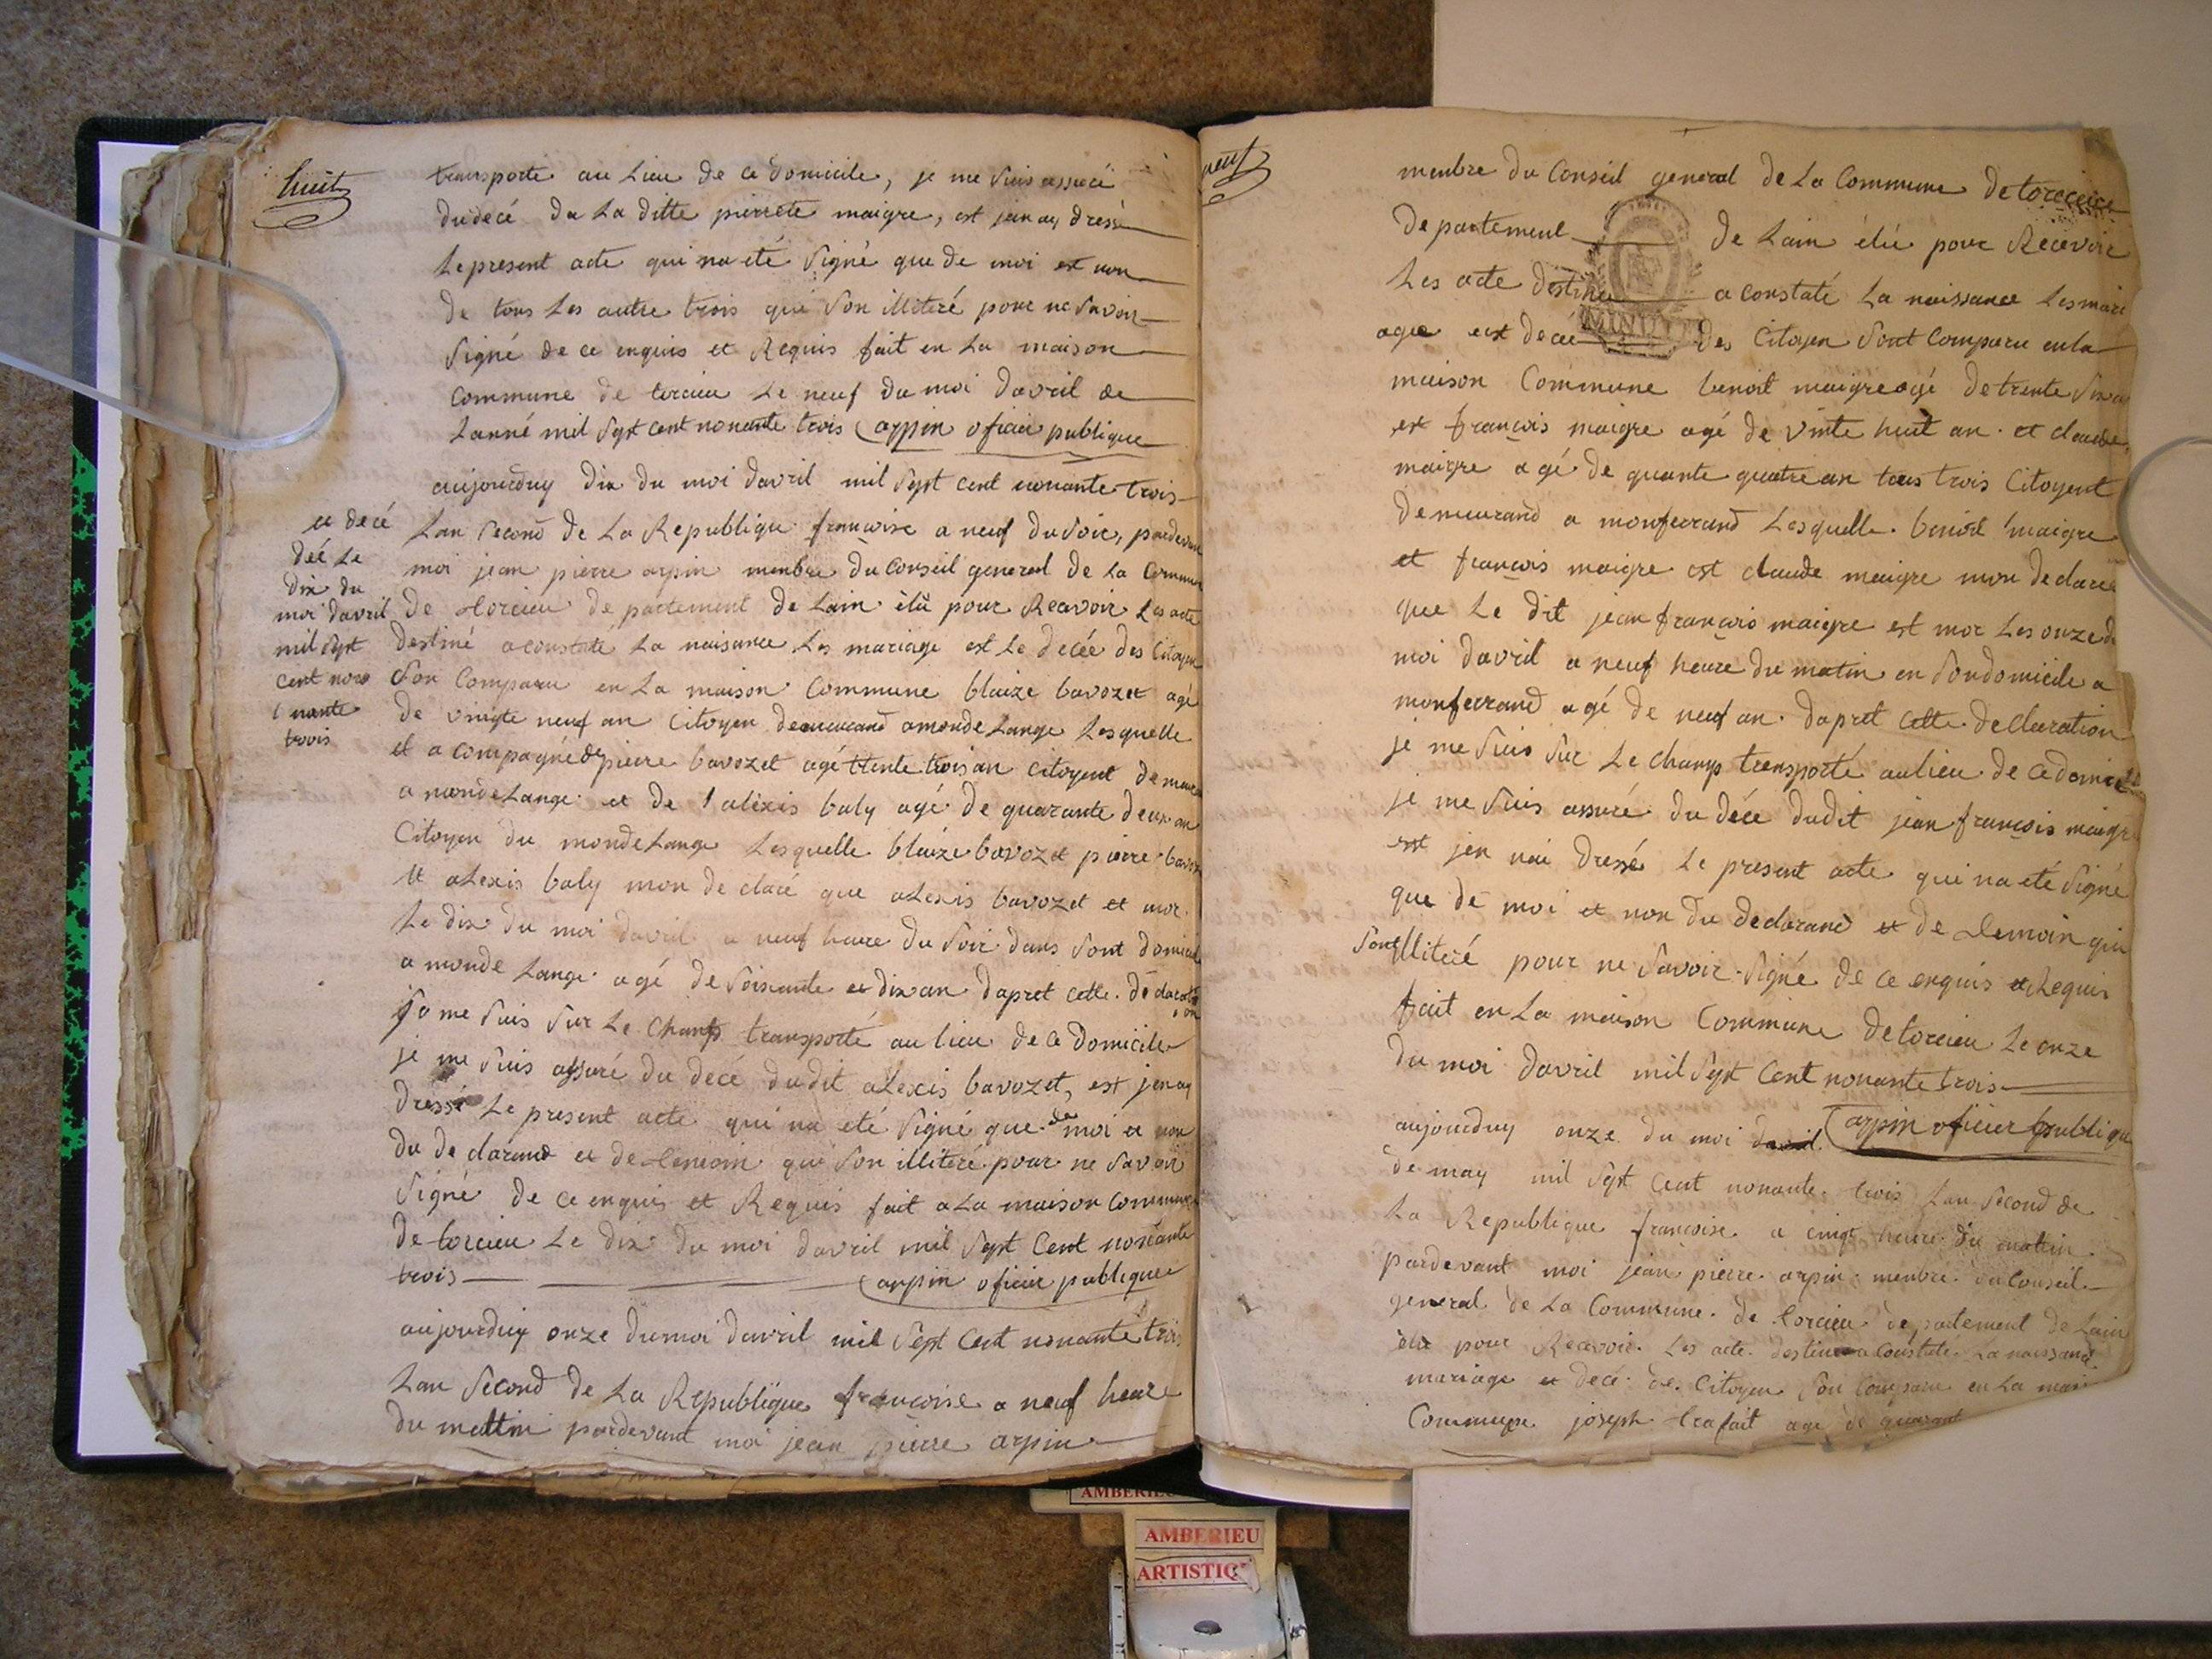 huit
transporté au Lieu de ce domicile, je me suis assuré
du decé de La ditte pierrete maigre, est jen ay dressé
Le present acte qui na eté Signé que de moi et non
de tous Les autre trois qui Son illiteré pour ne Savoir
Signé de ce enquis et Requis fait en La maison
commune de torcieu Le neuf du moi davril de
Lanné mil Sept cent nonante trois arpin oficier publique
aujourduy dix du moi davril mil Sept cent nonante trois
Lan Second de La Republique francoise a neuf du Soir, pardevant
moi jean pierre arpin menbre du Conseil general de La Commune
de torcieu departement de Lain élû pour Recevoir Les acte
destiné a constaté La naisance Les mariage est Le decée des Citoyen
Son Comparu en La maison Commune blaize bavozet agé
de vingte neuf an Citoyen demeurand a monde Lange Lesquelle
et a compagné de pierre bavozet agé ttente trois an Citoyent
a monde Lange et de alexis baly agé de quarante deux an
Citoyen du monde Lange Lesquelle blaize bavozet pierre
et aLexis baly mon de claré que aLexis bavozet et mor
Le dix du moi davril a neuf heure du Soir dans Sont domicile
a monde Lange agé de Soixante et dix an dapret cette declaration
je me Suis Sur Le Champ transporté au lieu de ce Domicile
je me Suis assuré du decé dudit aLexis bavozet, est jenay
dressé Le present acte qui na eté Signé que de moi et non
du declarand et de temoin qui Son illiteré pour ne Savoir
Signé de ce enquis et Requis fait a La maison Commune
de torcieu Le dix du moi davril mil Sept Cent nonante
trois arpin oficier publique
aujourduy onze du moi davril mil Sept Cent nonante trois
Lan Second de La Republique francoise a neuf heure
du mattin pardevant moi jean pierre arpin
decé
Le
dix du
moi davril
mil Sept
cent
nante
trois
neuf
menbre du Conseil general de La Commune de torcieu
Departement de Lain élû pour Recevoir
Les acte destiné a constaté La naissance Les mari
age est decée des Citoyen Sont Comparu en la
maison Commune benoit maigre agé de trente Six an
est françois maigre agé de vinte huit an et claude
maigre agé de quante quatre an tous trois Citoyent
demeurand a monferrand Lesquelle benoit maigre
et françois maigre est claude maigre mon declaré
que Le dit jean françois maigre est mor Les onze du
moi davril a neuf heure du matin en Son domicile a
monferrand agé de neuf an dapret cette declleration
je me Suis Sur Le champ transporté au lieu de ce domicile
je me Suis assuré du déce dudit jean françois maigre
est jen nai dressé Le present acte qui na eté Signé
que de moi et non du declarand et de temoin qui
Son illiteré pour ne Savoir Signé de ce enquis et Requis
fait en La maison Commune de torcieu Le onze
du moi davril mil Sept Cent nonante trois
arpin oficier publique
aujourduy onze du moi davril
de may mil Sept Cent nonante trois Lan Second de
La Republique francoise a cinqt heure du mattin
pardevant moi jean pierre arpin menbre du Conseil
general de La Commune de torcieu departement de Lain
élû pour Recevoir Les acte destiné a Constaté La naissance
mariage et decé des Citoyen Son Comparu en La maison
Commune joseph trafait agé de quarant
MINUTE
AMBERIEU
AMBERIEU
ARTISTIQ